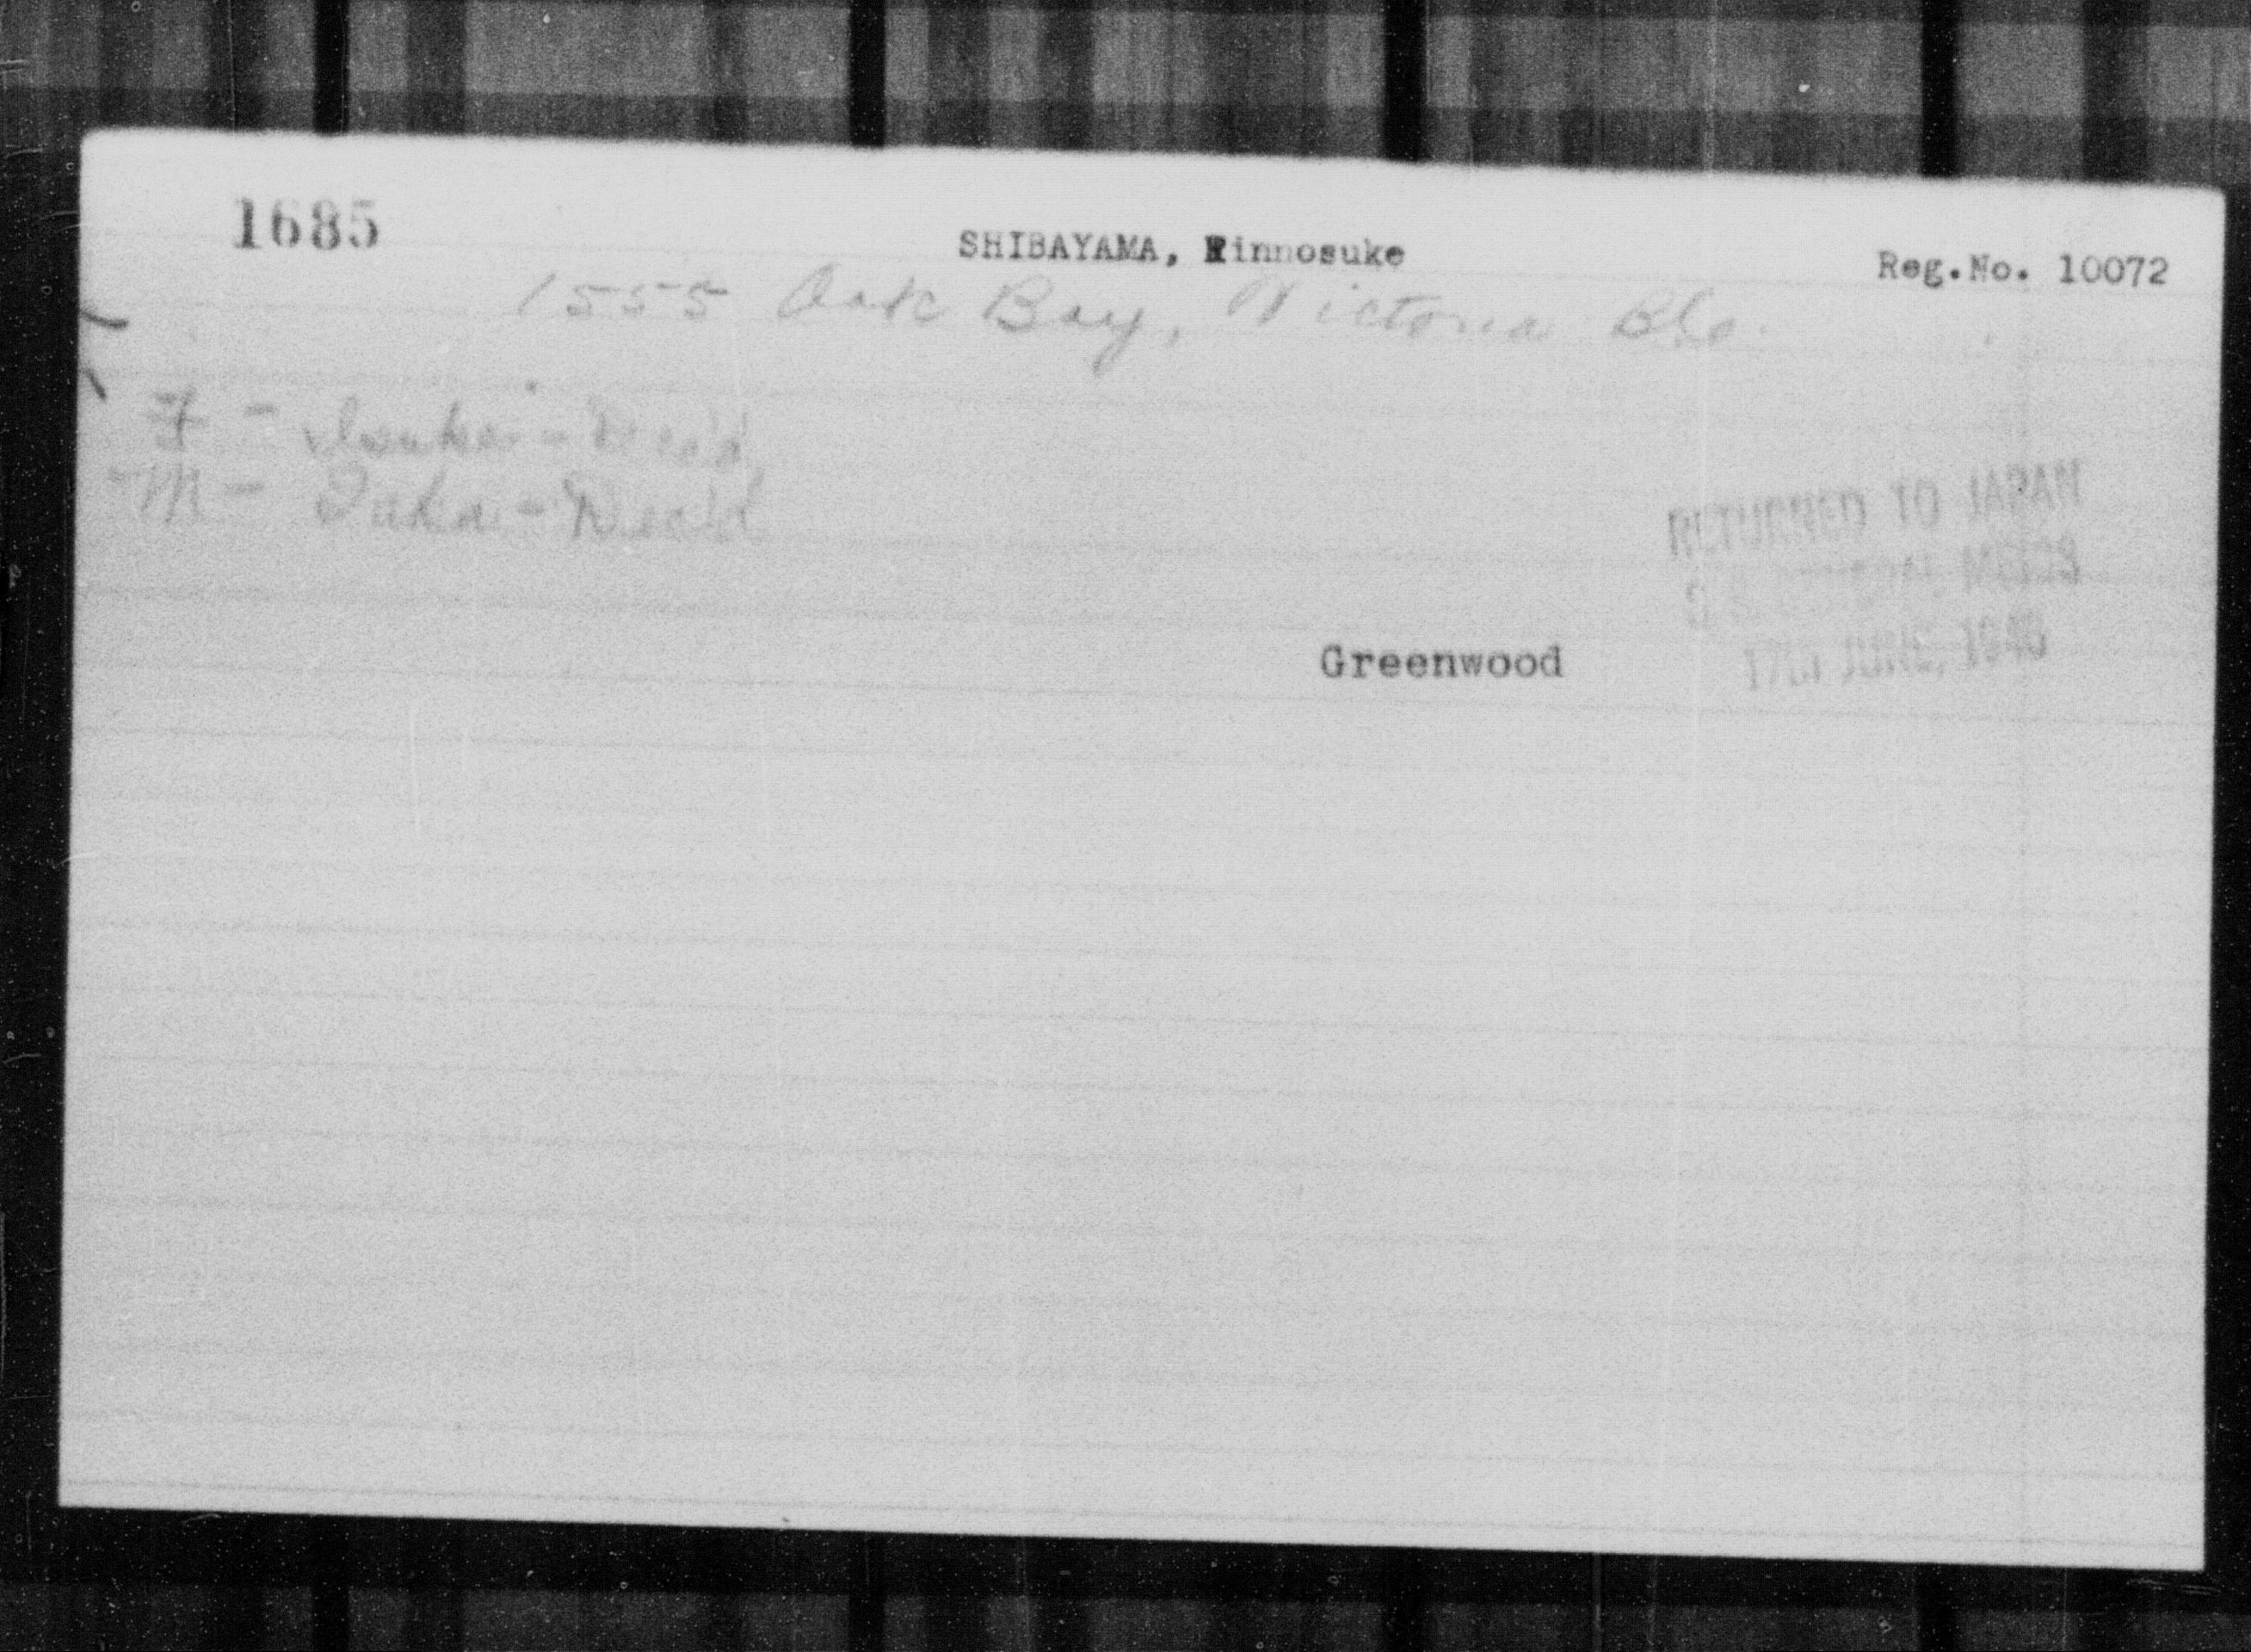 1685
SHIBAYAMA, Kinnosuke
Reg.No. 10072
1555 Oak Bay, Victoria B.C.
F - - Dec'd
M - Taka - Dec'd
RETURNED TO JAPAN
S.S. GENERAL MEIGS
17th JUNE, 1946
Greenwood